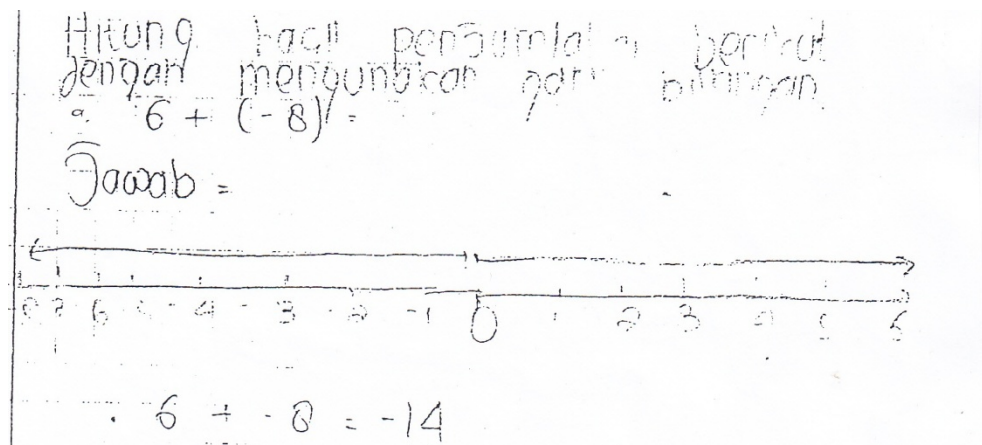 Hitung hasil penjumlahan berikut
dengan mengunakan garis bilangan
a. 6 + (-8) =
Jawab =
-8 -7 -6 -5 -4 -3 -2 -1 0 1 2 3 4 5 6
6 + -8 = -14